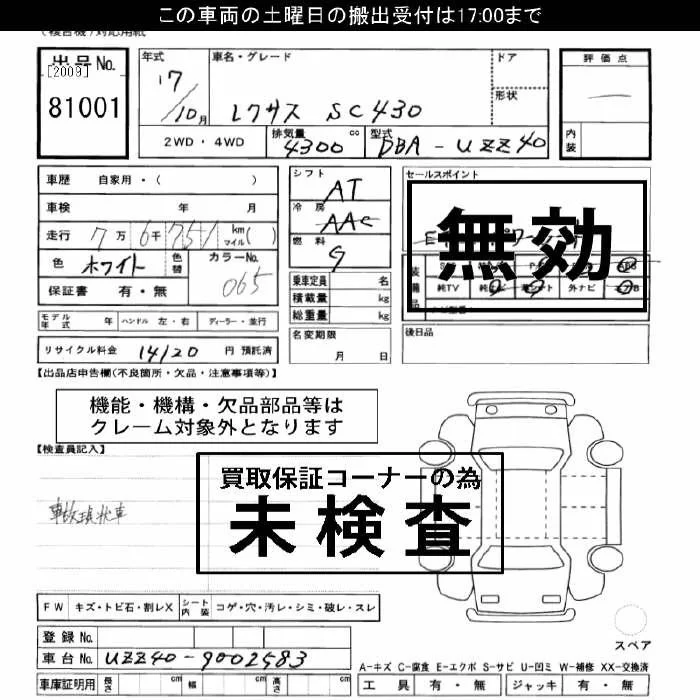 この車両の土曜日の搬出受付は17:00まで
出品No.
[2009]
81001
年式
17/10月
車名・グレード
レクサス SC430
ドア
形状
2WD・4WD
排気量
4300 cc
型式
DBA-UZZ40
評価点
内装
車歴 自家用・( )
車検 年 月
走行 7万6千751 km マイル( )
色 ホワイト 色替 カラーNo. 065
保証書 有・無
モデル年式 年 ハンドル 左・右 ディーラー・並行
リサイクル料金 14120 円 預託済
シフト AT
冷房 AAC
燃料 G
乗車定員 名
積載量 kg
総重量 kg
名変期限
月 日
セールスポイント
無効
純TV 外ナビ
後日品
【出品店申告欄(不良箇所・欠品・注意事項等)】
機能・機構・欠品部品等は
クレーム対象外となります
【検査員記入】
買取保証コーナーの為
未検査
FW キズ・トビ石・割レX シート内装 コゲ・穴・汚レ・シミ・破レ・スレ
登録No.
車台No. UZZ40-9002583
車庫証明用 長さ cm 幅 cm 高さ cm
スペア
A-キズ C-腐食 E-エクボ S-サビ U-凹ミ W-補修 XX-交換済
工具 有・無 ジャッキ 有・無